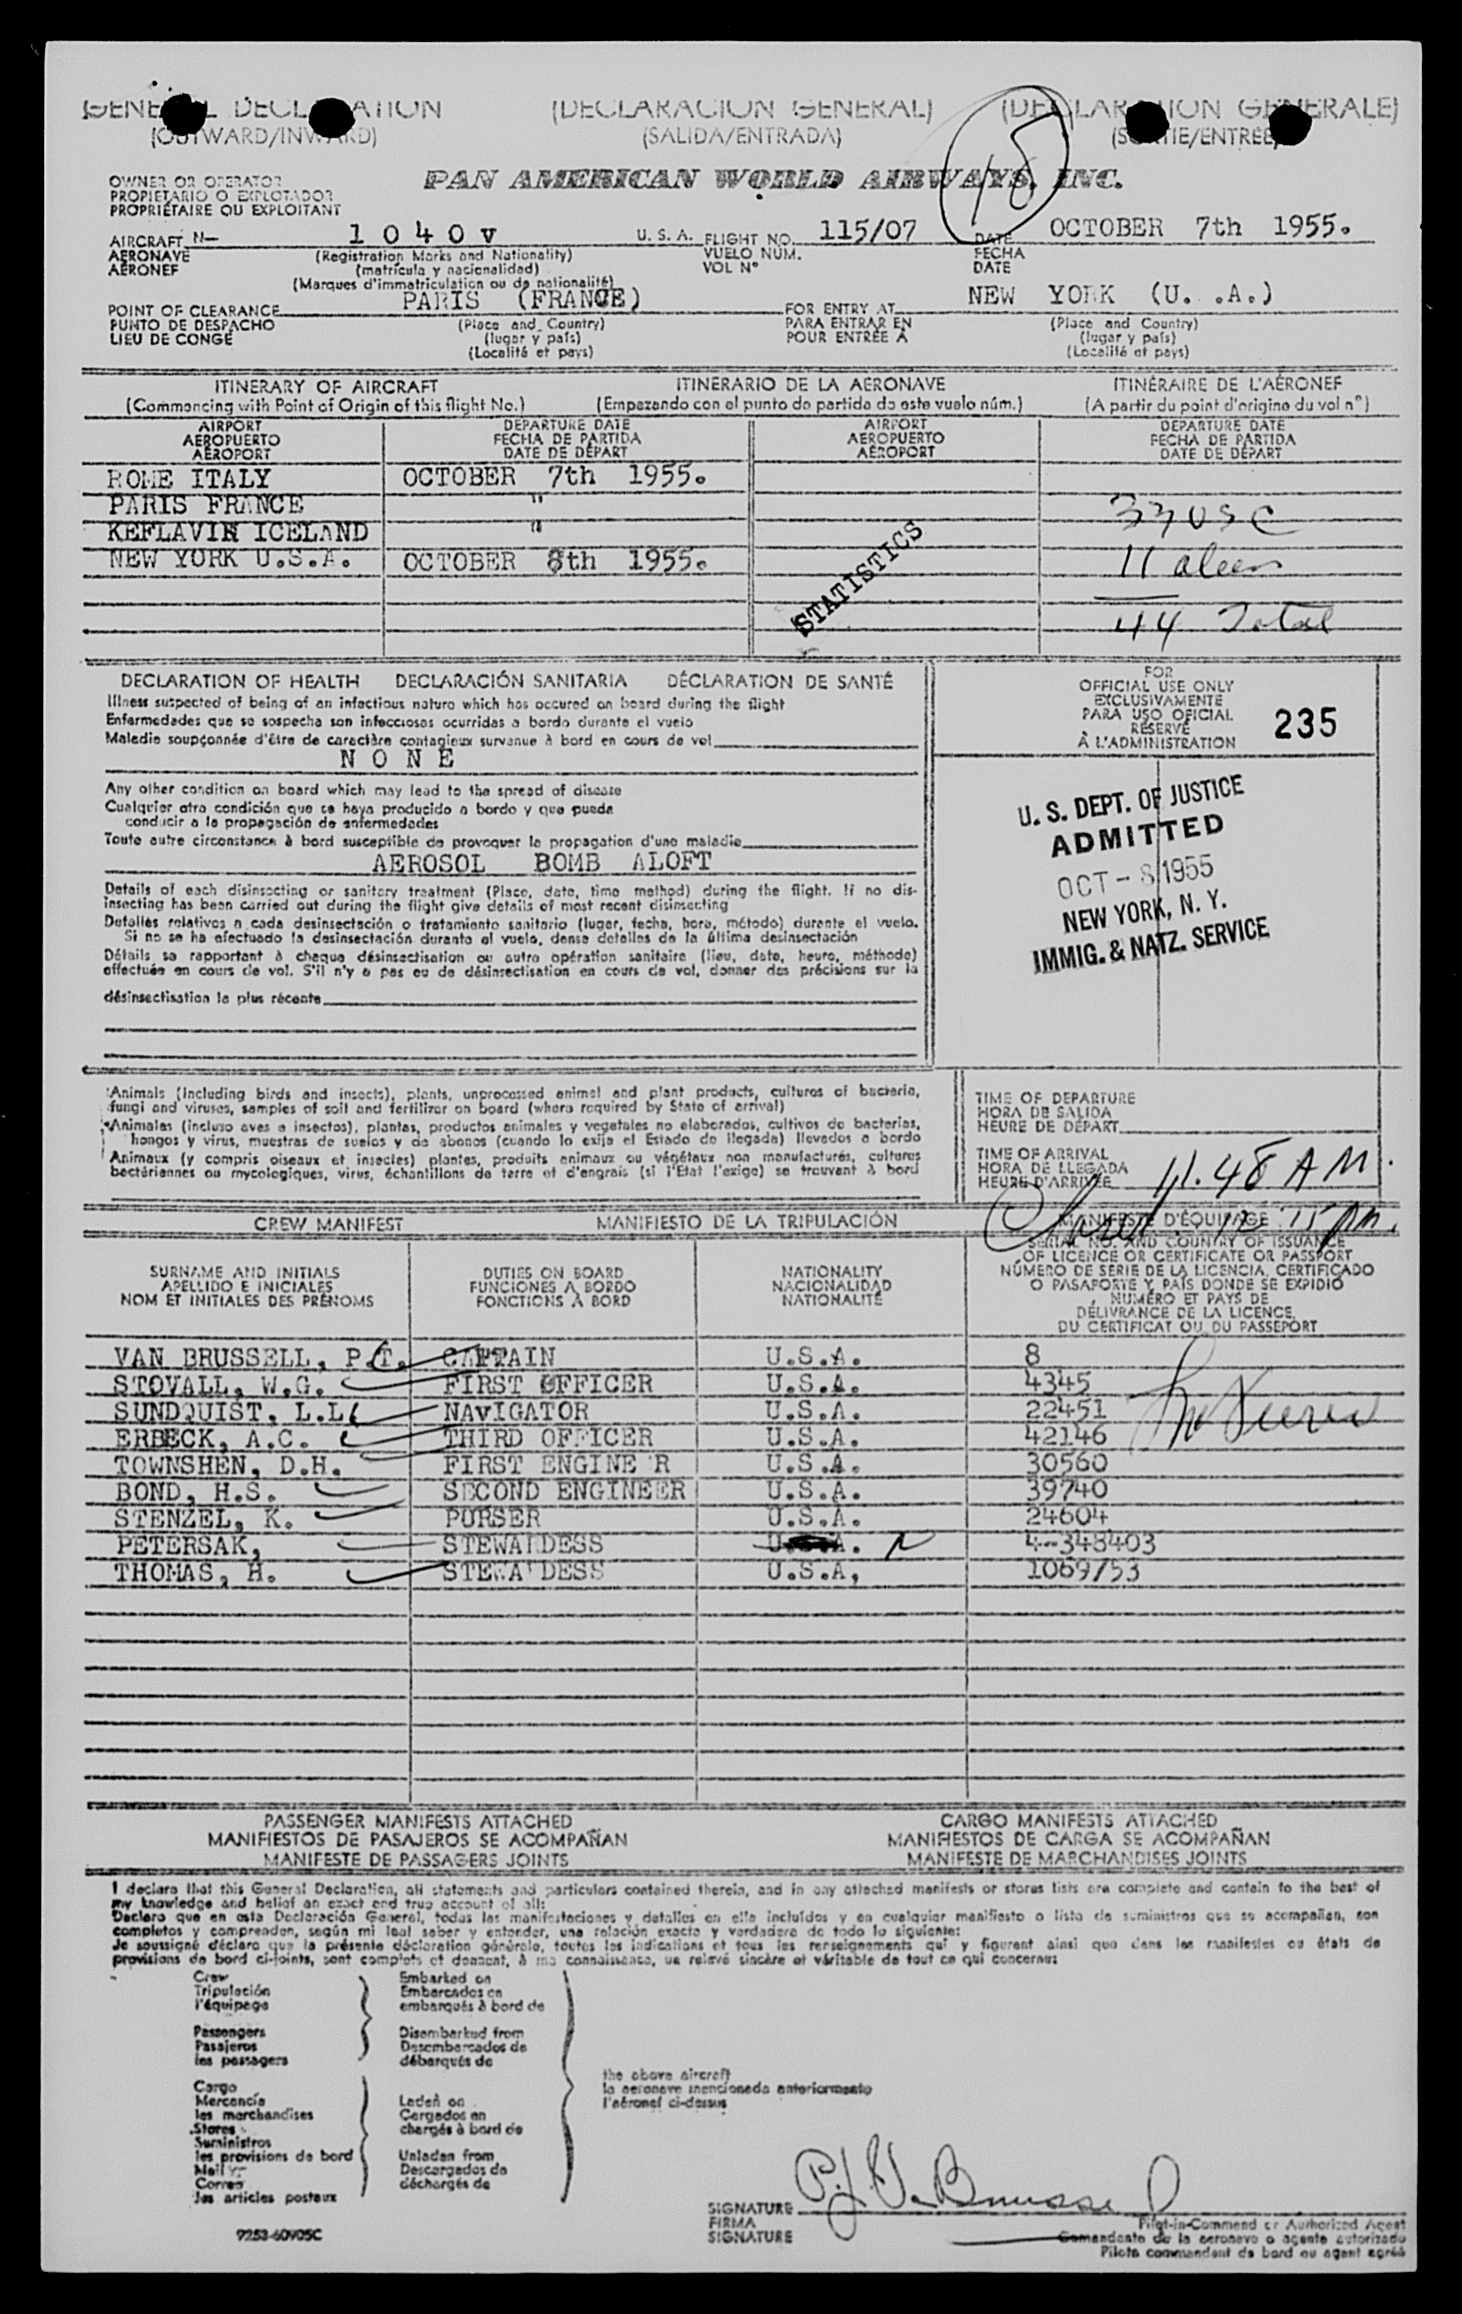 GENERAL DECLARATION (DECLARACION GENERAL) (DECLARATION GENERALE)
(OUTWARD/INWARD) (SALIDA/ENTRADA) (SORTIE/ENTREE)
48
OWNER OR OPERATOR
PROPIETARIO O EXPLOTADOR
PROPRIÉTAIRE OU EXPLOITANT
PAN AMERICAN WORLD AIRWAYS, INC.
AIRCRAFT N- 1 0 4 0 V U. S. A. FLIGHT NO. 115/07 DATE OCTOBER 7th 1955.
AERONAVE (Registration Marks and Nationality) VUELO NUM. FECHA
AÉRONEF (matrícula y nacionalidad) VOL N° DATE
(Marques d'immatriculation ou de nationalité)
POINT OF CLEARANCE PARIS (FRANCE) FOR ENTRY AT NEW YORK (U. .A.)
PUNTO DE DESPACHO (Place and Country) PARA ENTRAR EN (Place and Country)
LIEU DE CONGÉ (lugar y país) POUR ENTRÉE À (lugar y país)
(Localité et pays) (Localité et pays)
ITINERARY OF AIRCRAFT ITINERARIO DE LA AERONAVE ITINÉRAIRE DE L'AÉRONEF
(Commencing with Point of Origin of this flight No.) (Empezando con el punto de partida de este vuelo núm.) (A partir du point d'origine du vol n°)
AIRPORT DEPARTURE DATE AIRPORT DEPARTURE DATE
AEROPUERTO FECHA DE PARTIDA AEROPUERTO FECHA DE PARTIDA
AÉROPORT DATE DE DÉPART AÉROPORT DATE DE DÉPART
ROME ITALY OCTOBER 7th 1955.
PARIS FRANCE " 33 USC
KEFLAVIK ICELAND "
NEW YORK U.S.A. OCTOBER 8th 1955. 11 alien
STATISTICS
44 Total
DECLARATION OF HEALTH DECLARACIÓN SANITARIA DÉCLARATION DE SANTÉ
Illness suspected of being of an infectious nature which has occured on board during the flight
Enfermedades que se sospecha son infecciosas ocurridas a bordo durante el vuelo
Maladie soupçonnée d'être de caractère contagieux survenue à bord en cours de vol
N O N E
Any other condition on board which may lead to the spread of disease
Cualquier otra condición que se haya producido a bordo y que pueda
conducir a la propagación de enfermedades
Toute autre circonstance à bord susceptible de provoquer la propagation d'une maladie
AEROSOL BOMB ALOFT
Details of each disinsecting or sanitary treatment (Place, date, time method) during the flight. If no dis-
insecting has been carried out during the flight give details of most recent disinsecting
Detalles relativos a cada desinsectación o tratamiento sanitario (lugar, fecha, hora, método) durante el vuelo.
Si no se ha efectuado la desinsectación durante el vuelo, dense detalles de la última desinsectación
Détails se rapportant à chaque désinsectisation ou autre opération sanitaire (lieu, date, heure, méthode)
effectuée en cours de vol. S'il n'y a pas eu de désinsectisation en cours de vol, donner des précisions sur la
désinsectisation la plus récente
FOR
OFFICIAL USE ONLY
EXCLUSIVAMENTE
PARA USO OFICIAL
RÉSERVÉ
À L'ADMINISTRATION
235
U. S. DEPT. OF JUSTICE
ADMITTED
OCT - 8 1955
NEW YORK, N. Y.
IMMIG. & NATZ. SERVICE
Animals (Including birds and insects), plants, unprocessed animal and plant products, cultures of bacteria,
fungi and viruses, samples of soil and fertilizer on board (where required by State of arrival)
Animales (incluso aves e insectos), plantas, productos animales y vegetales no elaborados, cultivos de bacterias,
hongos y virus, muestras de suelos y de abonos (cuando lo exija el Estado de llegada) llevados a bordo
Animaux (y compris oiseaux et insectes) plantes, produits animaux ou végétaux non manufacturés, cultures
bactériennes ou mycologiques, virus, échantillons de terre et d'engrais (si l'Etat l'exige) se trouvant à bord
TIME OF DEPARTURE
HORA DE SALIDA
HEURE DE DÉPART
TIME OF ARRIVAL
HORA DE LLEGADA
HEURE D'ARRIVÉE 11.48 AM.
CREW MANIFEST MANIFIESTO DE LA TRIPULACIÓN MANIFESTE D'ÉQUIPAGE
SURNAME AND INITIALS DUTIES ON BOARD NATIONALITY SERIAL NO. AND COUNTRY OF ISSUANCE
APELLIDO E INICIALES FUNCIONES A BORDO NACIONALIDAD OF LICENCE OR CERTIFICATE OR PASSPORT
NOM ET INITIALES DES PRÉNOMS FONCTIONS À BORD NATIONALITÉ NÚMERO DE SERIE DE LA LICENCIA, CERTIFICADO
O PASAPORTE Y PAÍS DONDE SE EXPIDIÓ
NUMÉRO ET PAYS DE
DÉLIVRANCE DE LA LICENCE,
DU CERTIFICAT OU DU PASSEPORT
VAN BRUSSELL, P.J. CAPTAIN U.S.A. 8
STOVALL, W.G. FIRST OFFICER U.S.A. 4345
SUNDQUIST, L.L. NAVIGATOR U.S.A. 22451
ERBECK, A.C. THIRD OFFICER U.S.A. 42146
TOWNSHEN, D.H. FIRST ENGINE R U.S.A. 30560
BOND, H.S. SECOND ENGINEER U.S.A. 39740
STENZEL, K. PURSER U.S.A. 24604
PETERSAK, STEWARDESS 4-348403
THOMAS, H. STEWARDESS U.S.A, 1069753
PASSENGER MANIFESTS ATTACHED CARGO MANIFESTS ATTACHED
MANIFIESTOS DE PASAJEROS SE ACOMPAÑAN MANIFIESTOS DE CARGA SE ACOMPAÑAN
MANIFESTE DE PASSAGERS JOINTS MANIFESTE DE MARCHANDISES JOINTS
I declare that this General Declaration, all statements and particulars contained therein, and in any attached manifests or stores lists are complete and contain to the best of
my knowledge and belief an exact and true account of all:
Declaro que en esta Declaración General, todas las manifestaciones y detalles en ella incluídos y en cualquier manifiesto o lista de suministros que se acompañan, son
completos y comprenden, según mi leal saber y entender, una relación exacta y verdadera de todo lo siguiente:
Je soussigné déclare que la présente déclaration générale, toutes les indications et tous les renseignements qui y figurent ainsi que dans les manifestes ou états de
provisions de bord ci-joints, sont complets et donnent, à ma connaissance, un relevé sincère et véritable de tout ce qui concerne:
Crew Embarked on
Tripulación Embarcados en
l'équipage embarqués à bord de
Passengers Disembarked from
Pasajeros Desembarcados de
les passagers débarqués de
the above aircraft
la aeronave mencionada anteriormente
l'aéronef ci-dessus
Cargo
Mercancía Laden on
les marchandises Cargados en
Stores chargés à bord de
Suministros
les provisions de bord Unladen from
Mail Descargados de
Correo déchargés de
les articles postaux
SIGNATURE P.J. V. Brussel
FIRMA Pilot-in-Command or Authorized Agent
SIGNATURE Comandante de la aeronave o agente autorizado
Pilote commandant de bord ou agent agréé
9253-60905C